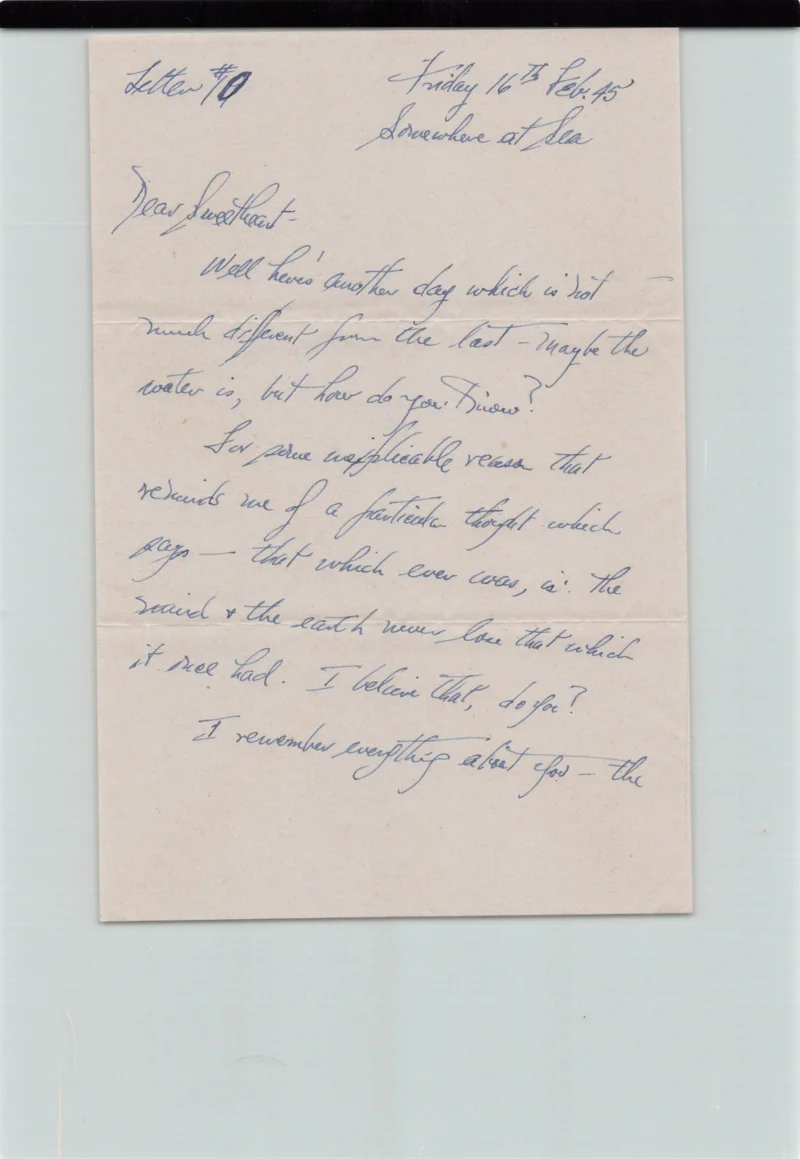 Letter #10
Friday 16TH Feb. 45
Somewhere at Sea
Dear Sweetheart -
Well here's another day which is not
much different from the last - maybe the
water is, but how do you know?
For some inexplicable reason that
reminds me of a particular thought which
says — that which ever was, is. The
mind & the earth never lose that which
it once had. I believe that, do you?
I remember everything about you — the